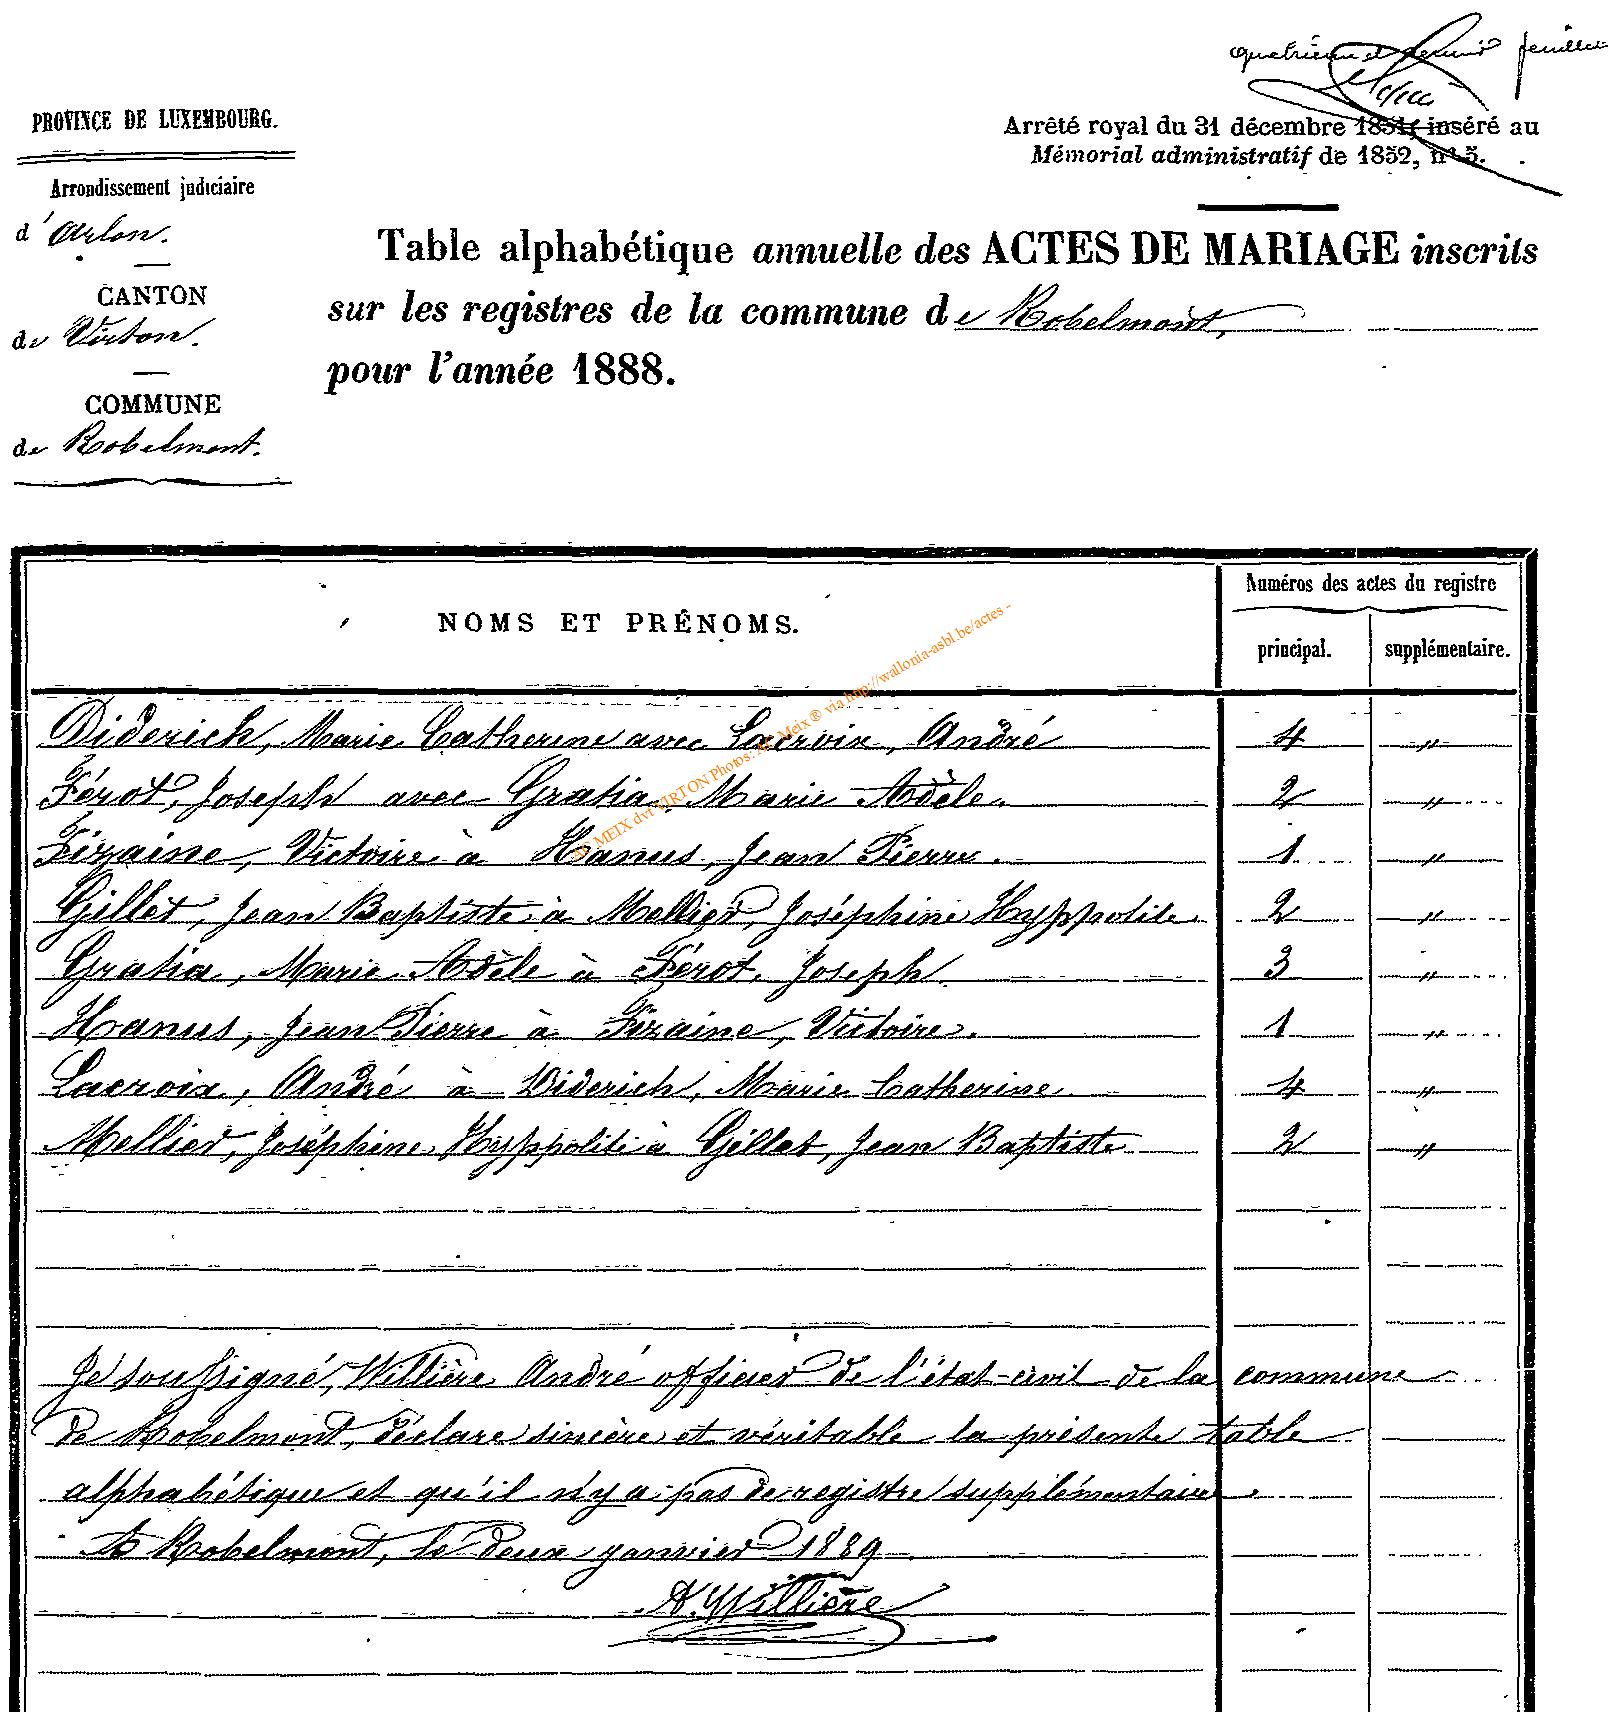 Quatrième et dernier feuillet
PROVINCE DE LUXEMBOURG.
Arrondissement judiciaire
d'Arlon.
CANTON
de Virton.
COMMUNE
de Robelmont.
Arrêté royal du 31 décembre 1851, inséré au
Mémorial administratif de 1852, n° 5.
Table alphabétique annuelle des ACTES DE MARIAGE inscrits
sur les registres de la commune de Robelmont,
pour l'année 1888.
NOMS ET PRÉNOMS.
Numéros des actes du registre
principal. supplémentaire.
Diderich, Marie Catherine avec Lacroix, André 4 "
Férot, Joseph avec Gratia, Marie Adèle. 2 "
Fizaine, Victoire à Hanus, Jean Pierre. 1 "
Gillet, Jean Baptiste à Mellier, Joséphine Hyppolite. 2 "
Gratia, Marie Adèle à Férot, Joseph. 3 "
Hanus, Jean Pierre à Fizaine, Victoire. 1 "
Lacroix, André à Diderich, Marie Catherine. 4 "
Mellier, Joséphine Hyppolite à Gillet, Jean Baptiste 2 "
Je soussigné, Willière André officier de l'état-civil de la commune
de Robelmont, déclare sincère et véritable la présente table
alphabétique et qu'il n'y a pas de registre supplémentaire.
A Robelmont, le deux janvier 1889.
A. Willière
MEIX dvt VIRTON Photos: Meix® via http://wallonia-asbl.be/actes -